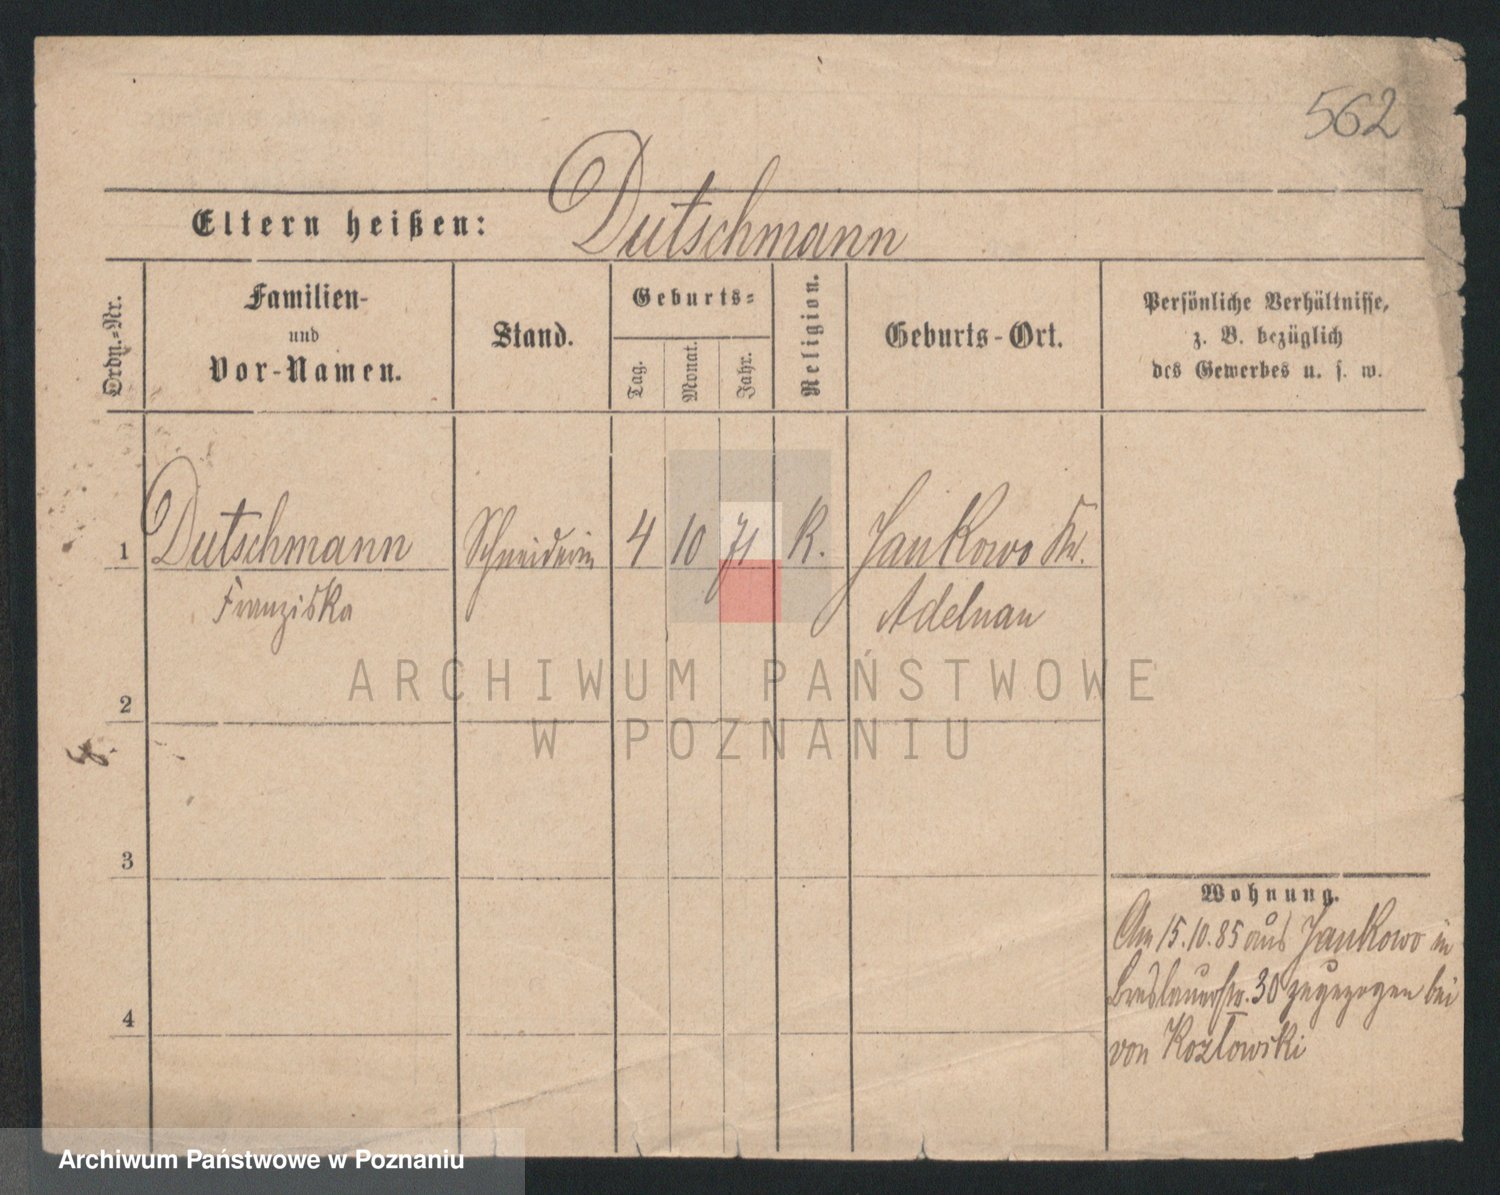 562
Eltern heißen: Dutschmann
Ordn.-Nr.
Familien-
und
Vor-Namen.
Stand.
Geburts-
Tag.
Monat.
Jahr.
Religion.
Geburts-Ort.
Persönliche Verhältnisse,
z. B. bezüglich
des Gewerbes u. s. w.
1 Dutschmann Schneiderin 4 10 71 K. Jankowo Kr.
Franziska Adelnau
2
3
4
Wohnung.
Am 15.10.85 aus Jankowo in
Breslauerstr. 30 zugezogen bei
von Kozłowski
ARCHIWUM PAŃSTWOWE
W POZNANIU
Archiwum Państwowe w Poznaniu